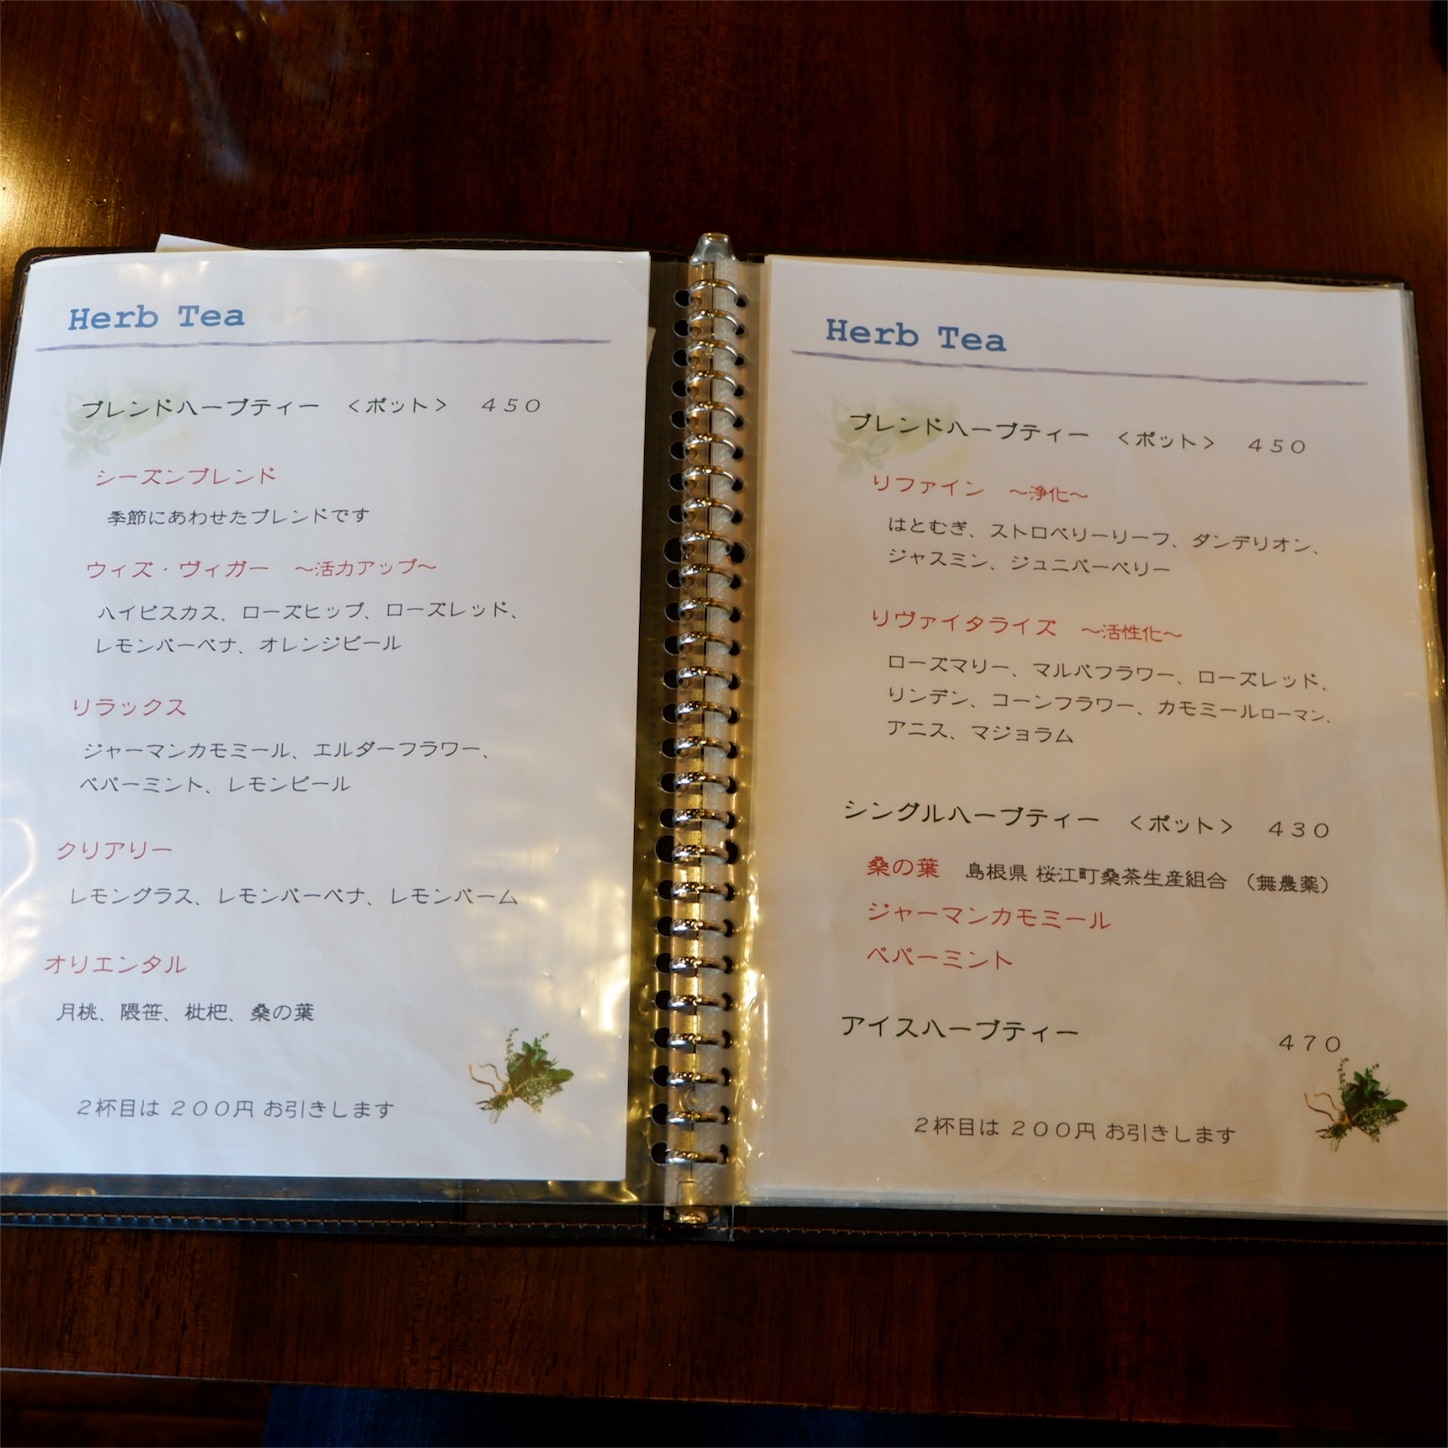 Herb Tea
ブレンドハーブティー <ポット> 450
シーズンブレンド
季節にあわせたブレンドです
ウィズ・ヴィガー ～活力アップ～
ハイビスカス、ローズヒップ、ローズレッド、
レモンバーベナ、オレンジピール
リラックス
ジャーマンカモミール、エルダーフラワー、
ペパーミント、レモンピール
クリアリー
レモングラス、レモンバーベナ、レモンバーム
オリエンタル
月桃、隈笹、枇杷、桑の葉
2杯目は 200円 お引きします
Herb Tea
ブレンドハーブティー <ポット> 450
リファイン ～浄化～
はとむぎ、ストロベリーリーフ、ダンデリオン、
ジャスミン、ジュニパーベリー
リヴァイタライズ ～活性化～
ローズマリー、マルバフラワー、ローズレッド、
リンデン、コーンフラワー、カモミールローマン、
アニス、マジョラム
シングルハーブティー <ポット> 430
桑の葉 島根県 桜江町桑茶生産組合 （無農薬）
ジャーマンカモミール
ペパーミント
アイスハーブティー 470
2杯目は 200円 お引きします